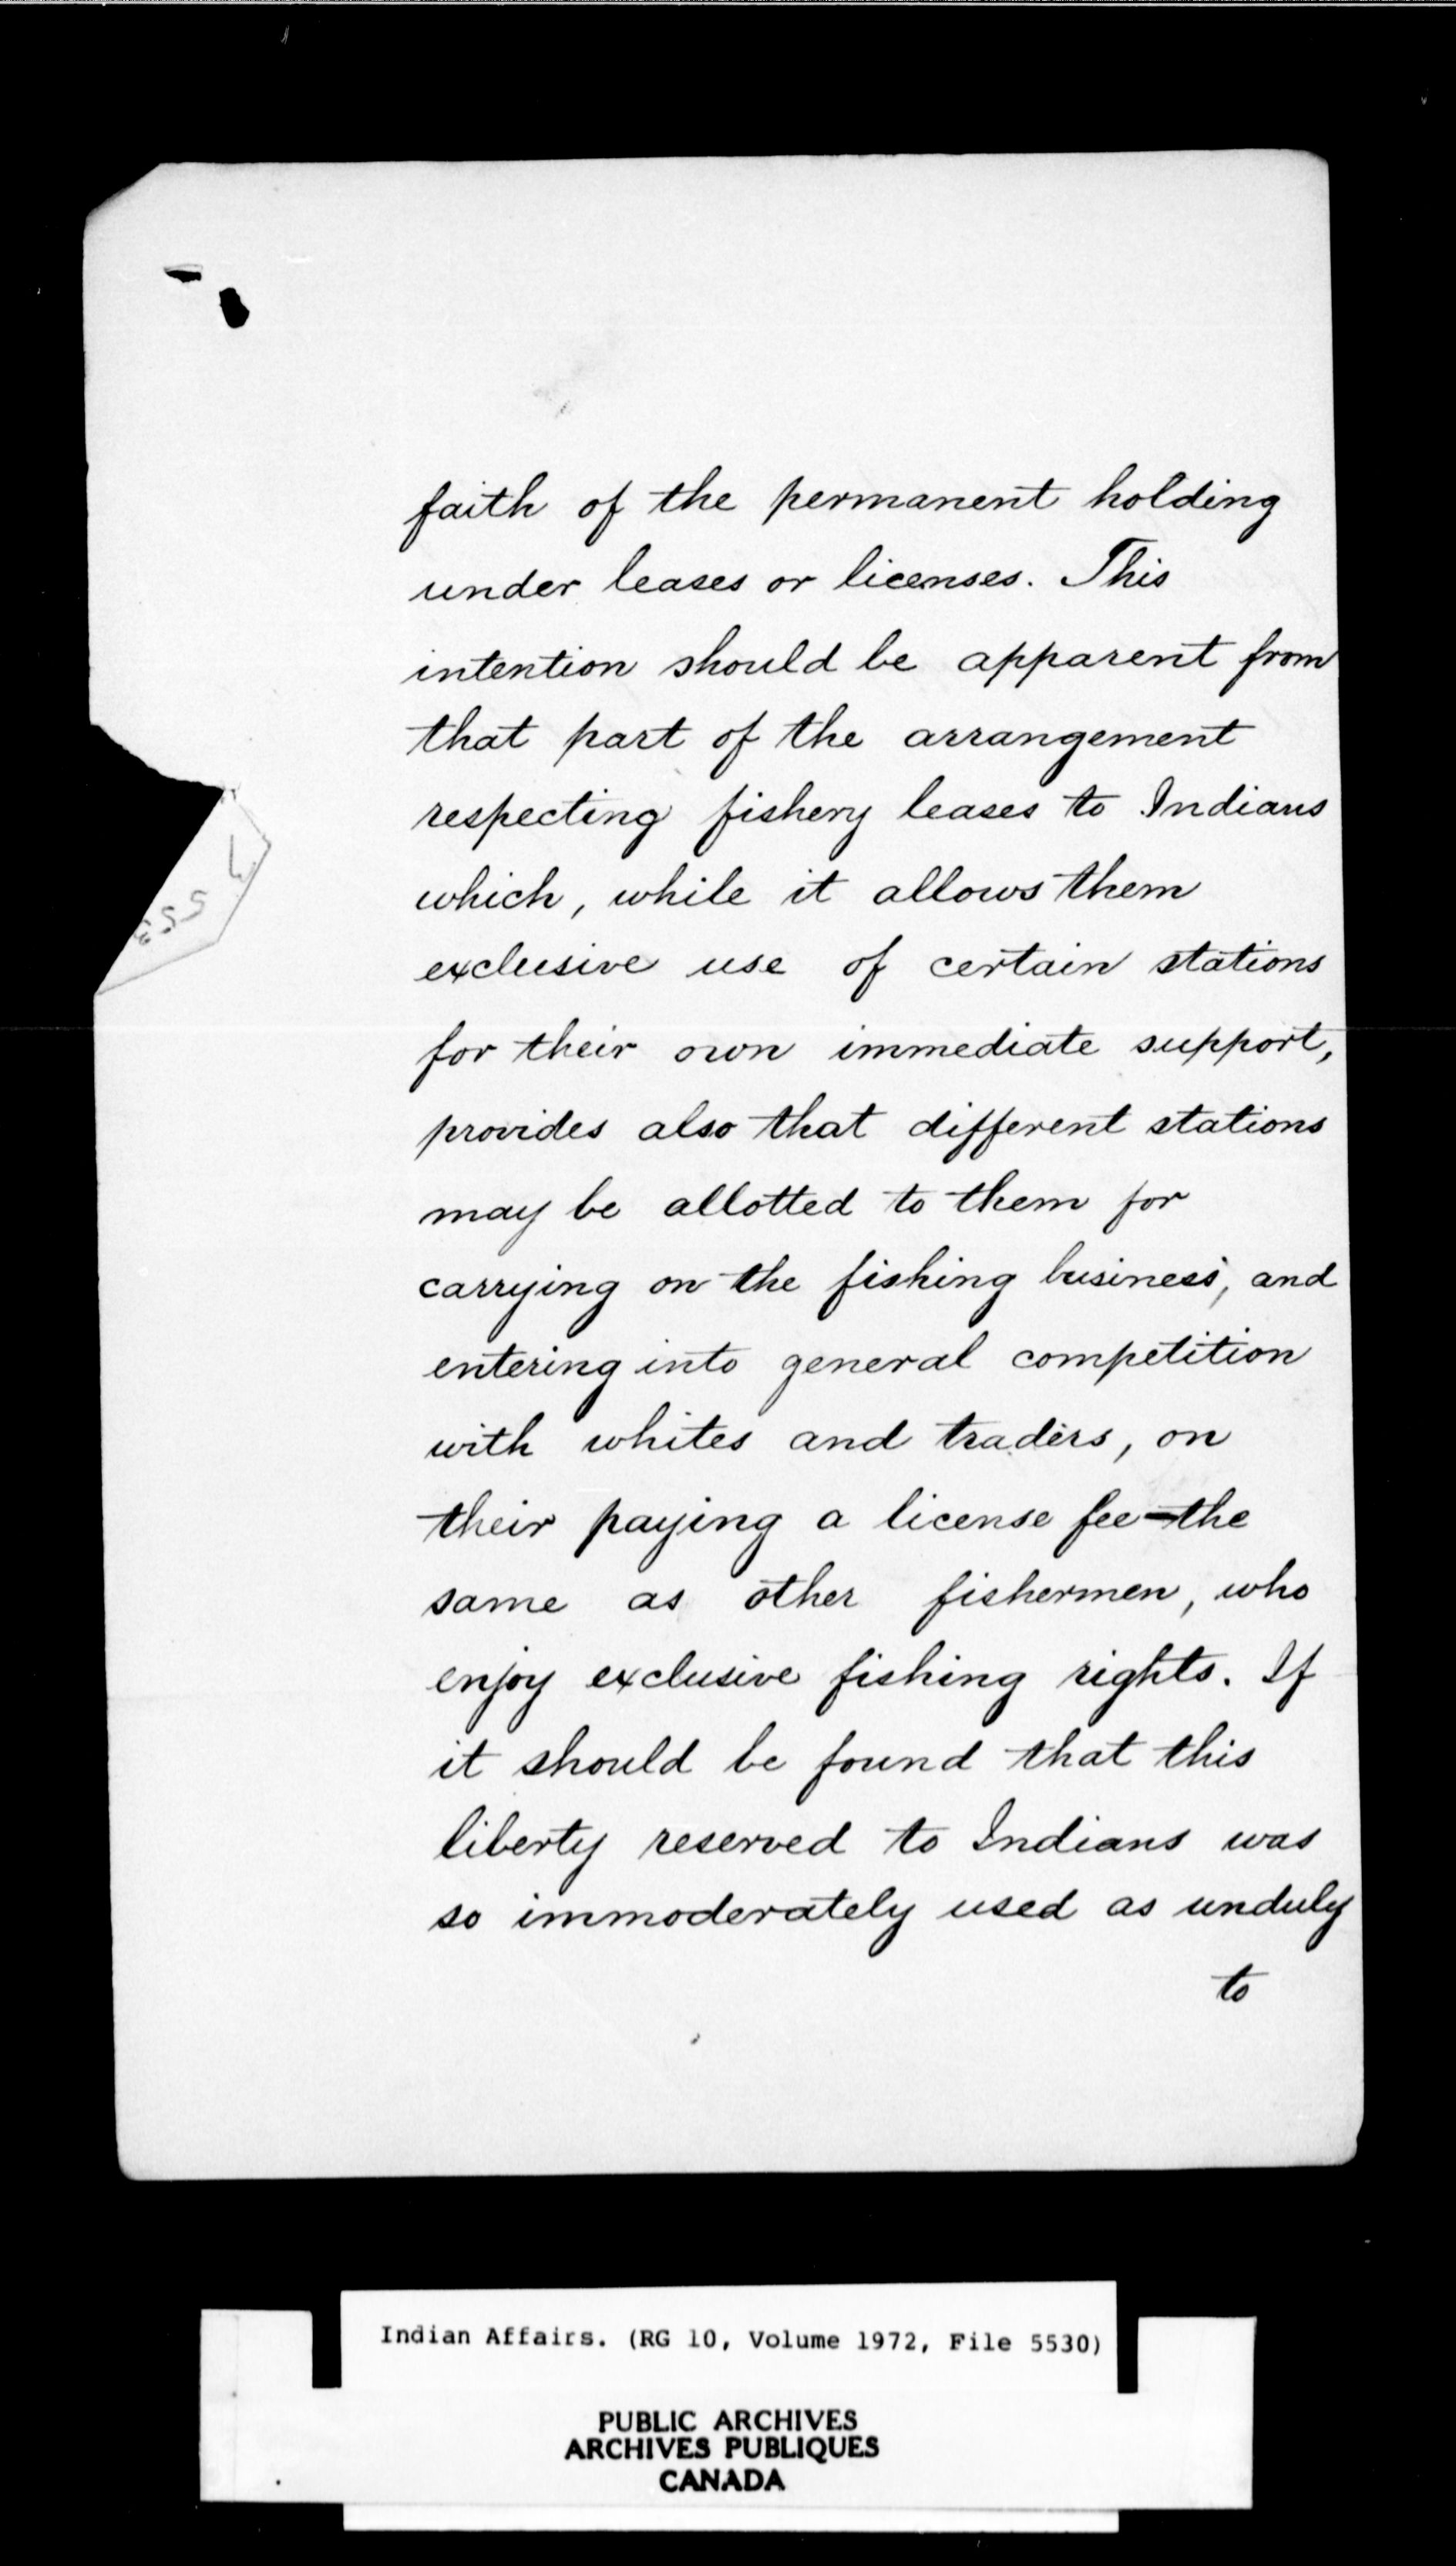 faith of the permanent holding
under leases or licenses. This
intention should be apparent from
that part of the arrangement
respecting fishery leases to Indians
which, while it allows them
exclusive use of certain stations
for their own immediate support,
provides also that different stations
may be allotted to them for
carrying on the fishing business, and
entering into general competition
with whites and traders, on
their paying a license fee—the
same as other fishermen, who
enjoy exclusive fishing rights. If
it should be found that this
liberty reserved to Indians was
so immoderately used as unduly
to
Indian Affairs. (RG 10, Volume 1972, File 5530)
PUBLIC ARCHIVES
ARCHIVES PUBLIQUES
CANADA